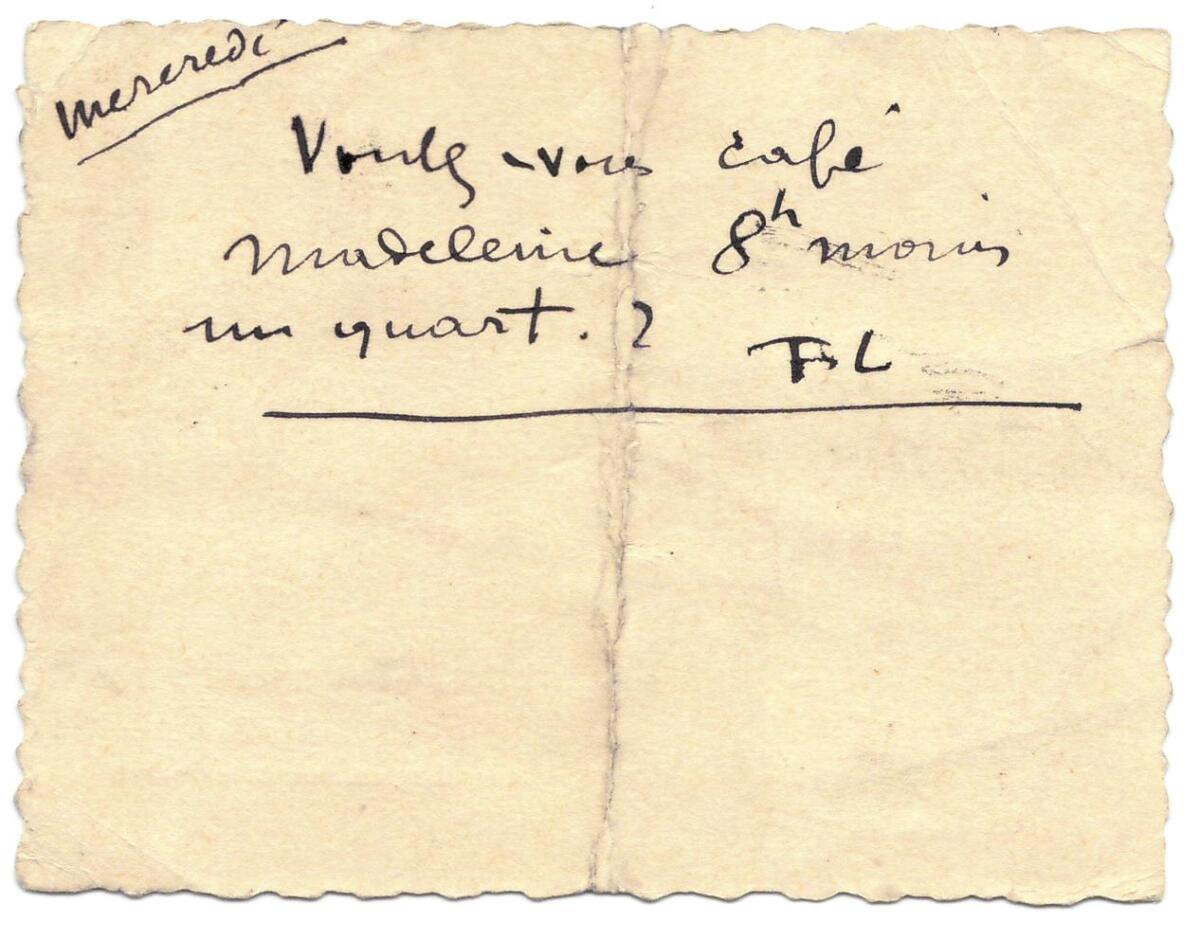 mercredi
Voulez-vous café
Madeleine 8h moins
un quart. ?